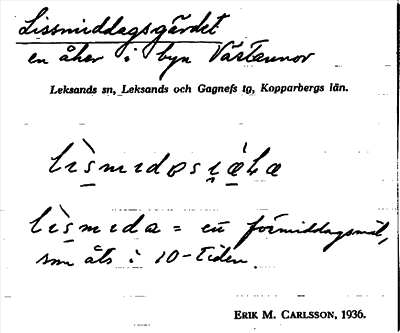 Lissmiddagsgärdet
en åker i byn Västannor
Leksands sn, Leksands och Gagnefs tg, Kopparbergs län.
= en förmiddagsmål,
som åts i 10-tiden.
ERIK M. CARLSSON, 1936.